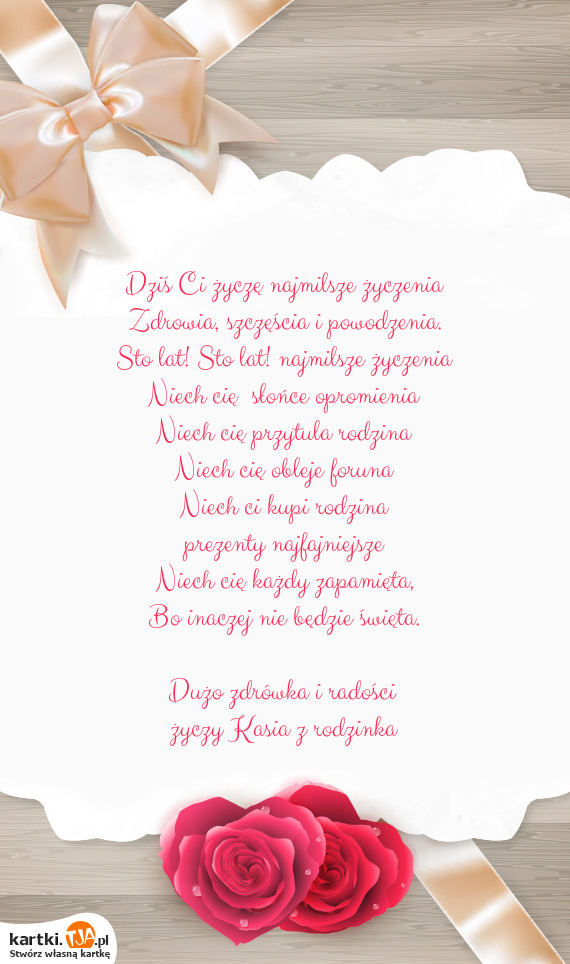 Dziś Ci życzę najmilsze życzenia
Zdrowia, szczęścia i powodzenia.
Sto lat! Sto lat! najmilsze życzenia
Niech cię słońce opromienia
Niech cię przytula rodzina
Niech cię obleje foruna
Niech ci kupi rodzina
prezenty najfajniejsze
Niech cię każdy zapamięta,
Bo inaczej nie będzie święta.
Dużo zdrówka i radości
życzy Kasia z rodzinka
kartki.TJA.pl
Stwórz własną kartkę